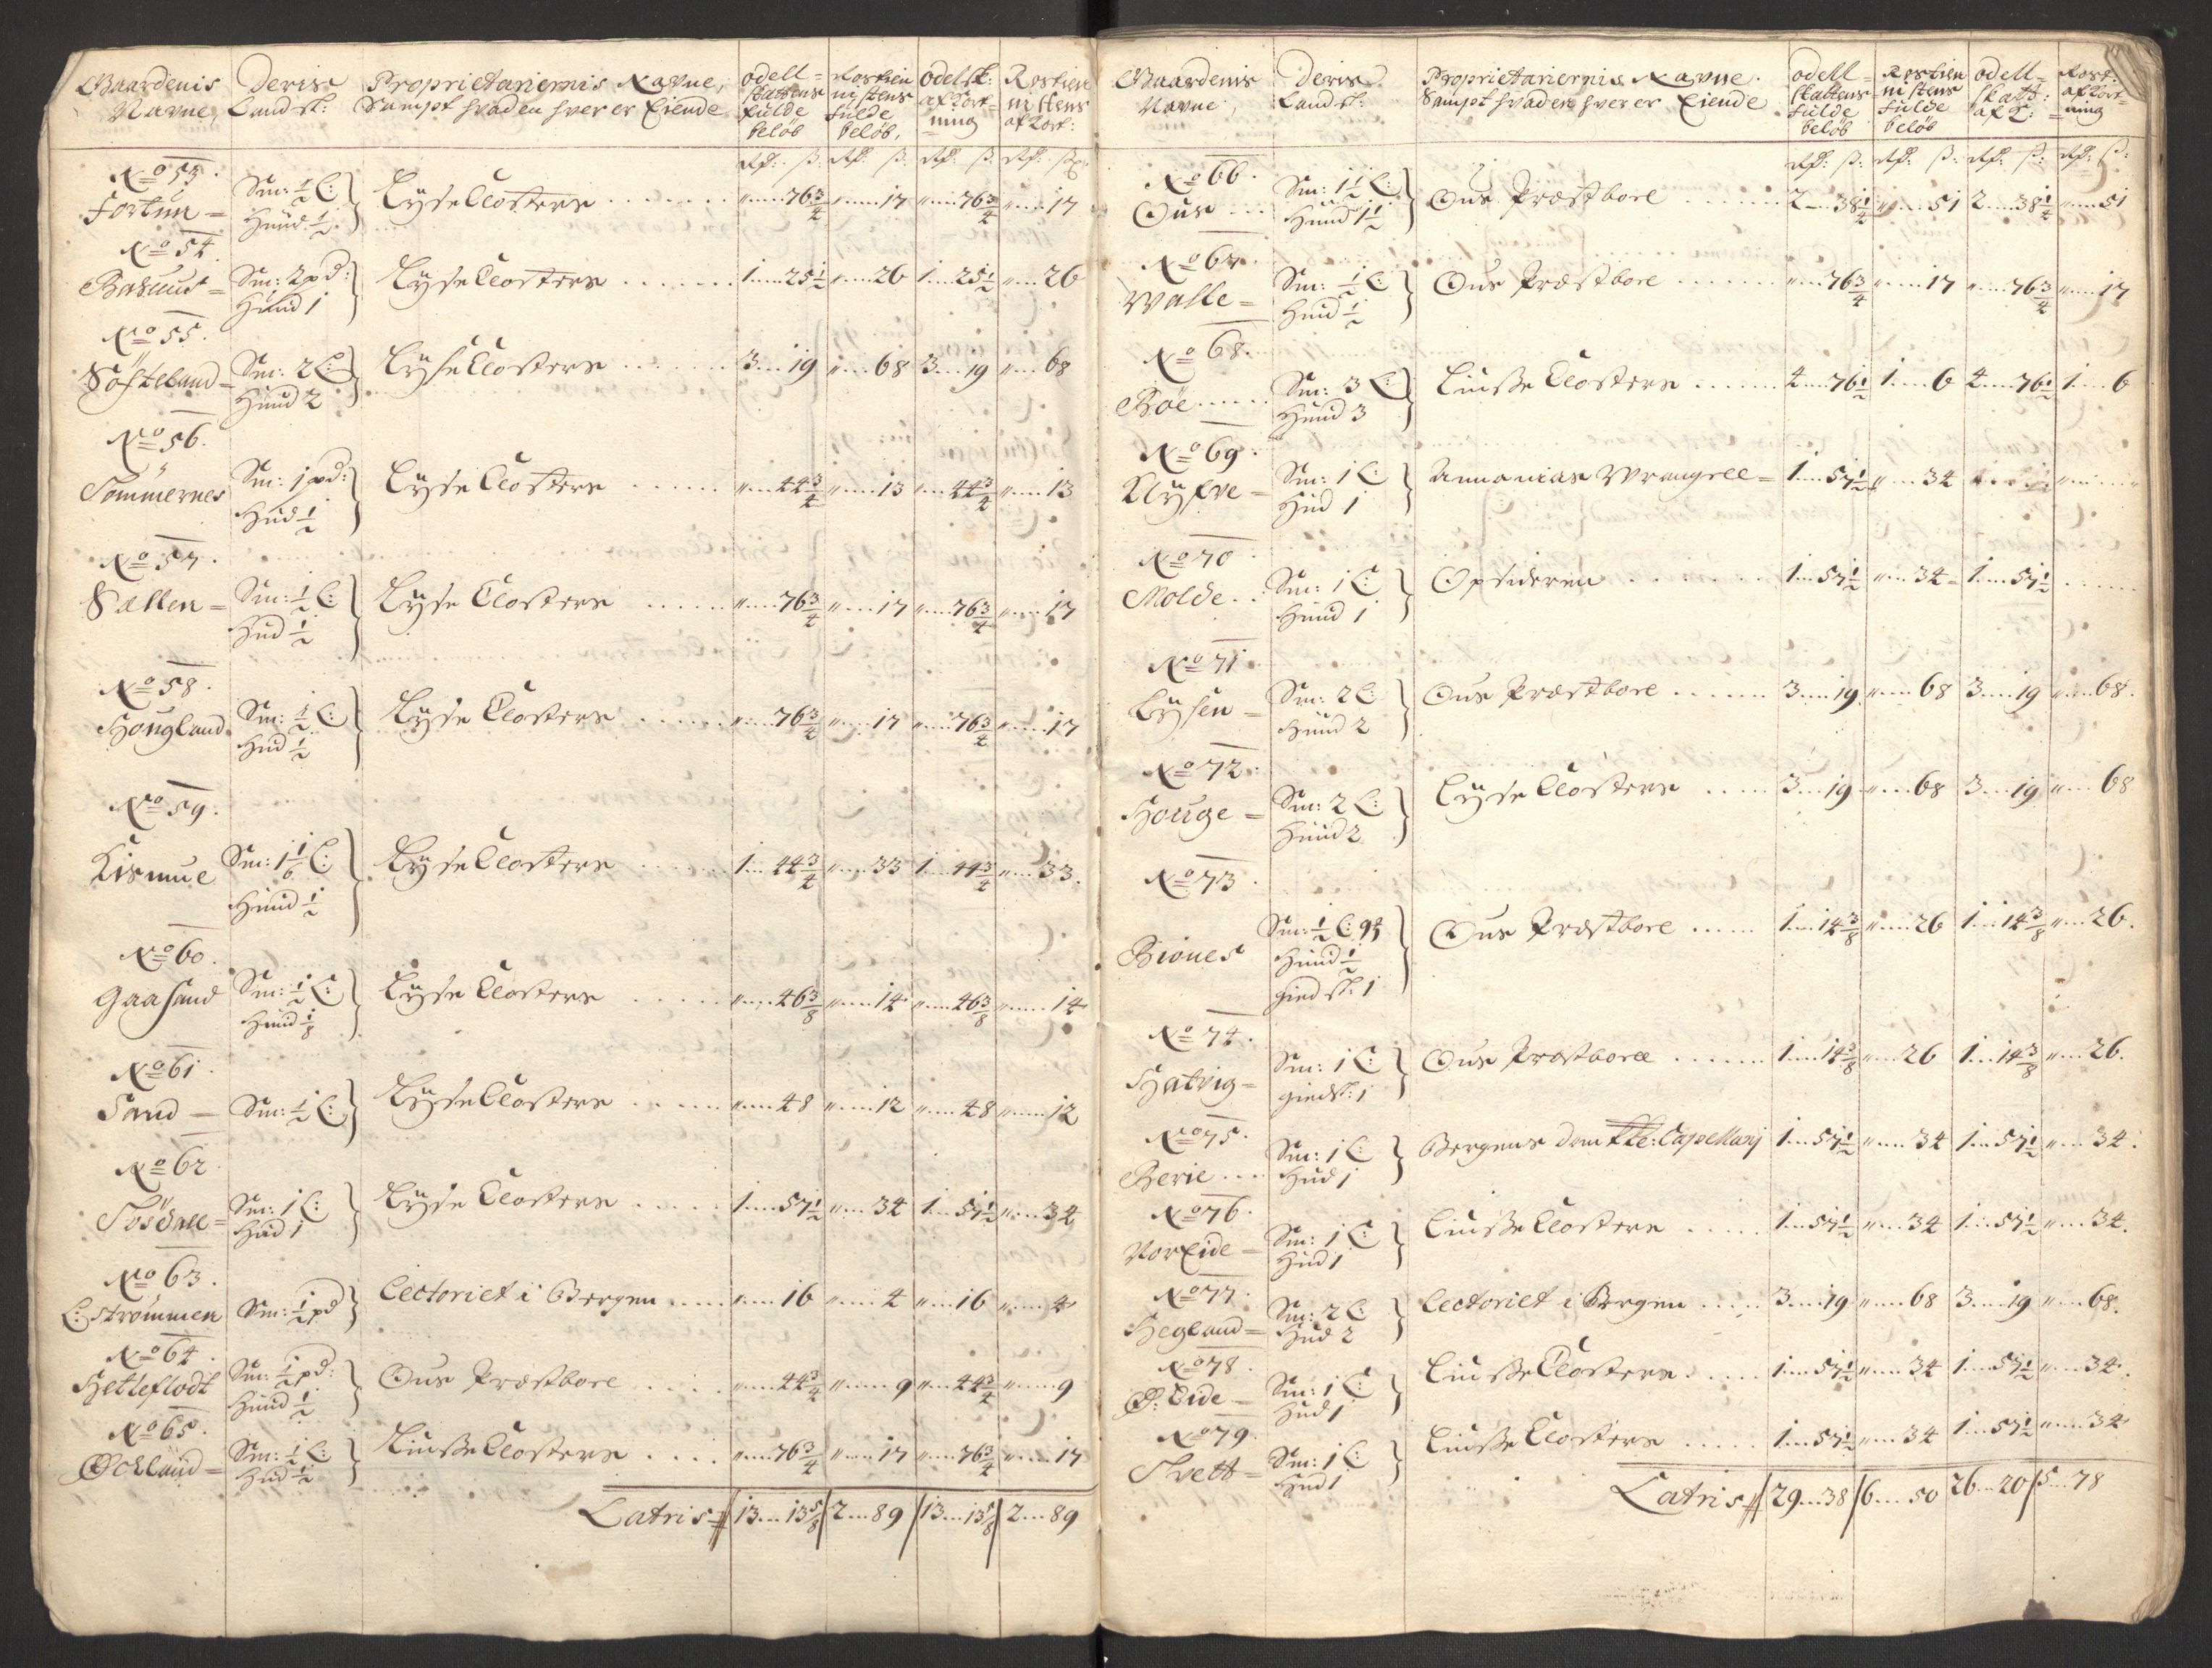 Gaardenis Navne, Deris Landsk: Proprietariernis Navne, Sampt hvad en hver er Eiende odell= skattens fulde beløb Rostien= nistens fulde beløb, Odelsk: afkort= ning Rostien= nistens afkort:
Rd: ß: Rd: ß: Rd: ß: Rd: ß:
No 53.
Fortun = Sm: ½ L: Huud ½ Lyse Closters ...... " 76¾ " 17 " 76¾ " 17
No 54.
Smr: 2 pd: Huud 1 Lyse Closters ...... 1 25½ " 26 1 25½ " 26
No 55.
Søfteland = Sm: 2 L: Huud 2 Lyse Closters ...... 3 19 " 68 3 19 " 68
No 56.
Sømmernes Sm: 1 pd: Hud ½ Lyse Closters ...... " 44¾ " 13 " 44¾ " 13
No 57.
Sælen = Sm: ½ L: Hud ½ Lyse Closters ...... " 76¾ " 17 " 76¾ " 17
No 58.
Hougland Sm: ½ L: Hud ½ Lyse Closters ...... " 76¾ " 17 " 76¾ " 17
No 59.
Kismue Sm: 1 1/6 L: Huud ½ Lyse Closters ...... 1 44¾ " 33 1 44¾ " 33.
No 60.
Gaasand Sm: ½ L: Huud 1/8 Lyse Closters ...... " 46⅜ " 14 " 46⅜ " 14
No 61.
Sand = Sm: ½ L: Lyse Closters ...... " 48 " 12 " 48 " 12
No 62
Sm: 1 L: Hud 1 Lyse Closters ...... 1 57½ " 34 1 57½ " 34
No 63.
L: Strømmen Sm: ½ pd Lectoriet i Bergen ...... " 16 " 4 " 16 " 4
No 64.
Hetleflodt Sm: ½ pd: Huud ½ Ous Præstbore ...... " 44¾ " 9 " 44¾ " 9
No 65.
Sm: ½ L: Hud ½ Liusse Closters ...... " 76¾ " 17 " 76¾ " 17
Latris 13 13⅝ 2 89 13 13⅝ 2 89
Gaardenis Navne, Deris Landsk: Proprietariernis Navne. Sampt hvad en hver er Eiende odell= skattens fulde beløb Rostien= nistens fulde beløb odell= skatt: afk: Rost: afkort= ning
Rd: ß: Rd: ß: Rd: ß: Rd: ß:
No 66.
Ous ... Sm: 1½ L: Huud 1½ Ous Præstbore ...... 2 38¼ " 51 2 38¼ " 51
No 67.
Walle = Sm: ½ L: Huud ½ Ous Præstbore ...... " 76¾ " 17 " 76¾ " 17
No 68.
Bøe ..... Sm: 3 L: Huud 3 Liusse Closters ...... 4 76½ 1 6 4 76½ 1 6
No 69.
Klyfve = Sm: 1 L: Hud 1 Annanias Wrangell = 1 57½ " 34
No 70
Molde .. Sm: 1 L: Huud 1 Opsideren ...... 1 57½ " 34 = 1 57½ ......
No 71.
Lysen = Sm: 2 L: Huud 2 Ous Præstbore ...... 3 19 " 68 3 19 " 68.
No 72.
Houge = Sm: 2 L: Huud 2 Lyse Closters ..... 3 19 " 68 3 19 " 68
No 73.
Biønes Sm: ½ L: Huud ½ giedsk: 1 Ous Præstbore ..... 1 14⅜ " 26 1 14⅜ " 26.
No 74.
Hatvig = Sm: 1 L: giedsk: 1 Ous Præstbore ...... 1 14⅜ " 26 1 14⅜ " 26.
No 75.
Berie ... Sm: 1 L: Hud 1 Bergens dom Capellanj 1 57½ " 34 1 57½ " 34.
No 76.
Sm: 1 L: Hud 1 Liusse Closters .... 1 57½ " 34 1 57½ " 34.
No 77.
Hegland = Sm: 2 L: Hud 2 Lectoriet i Bergen ..... 3 19 " 68 3 19 " 68.
No 78.
Ø: Eide = Sm: 1 L: Hud 1 Liusse Closters ..... 1 57½ " 34 1 57½ " 34.
No 79.
Tvett = Sm: 1 L: Hud 1 Liusse Closters ..... 1 57½ " 34 1 57½ " 34
Latris 29 38 6 50 26 20 5 78